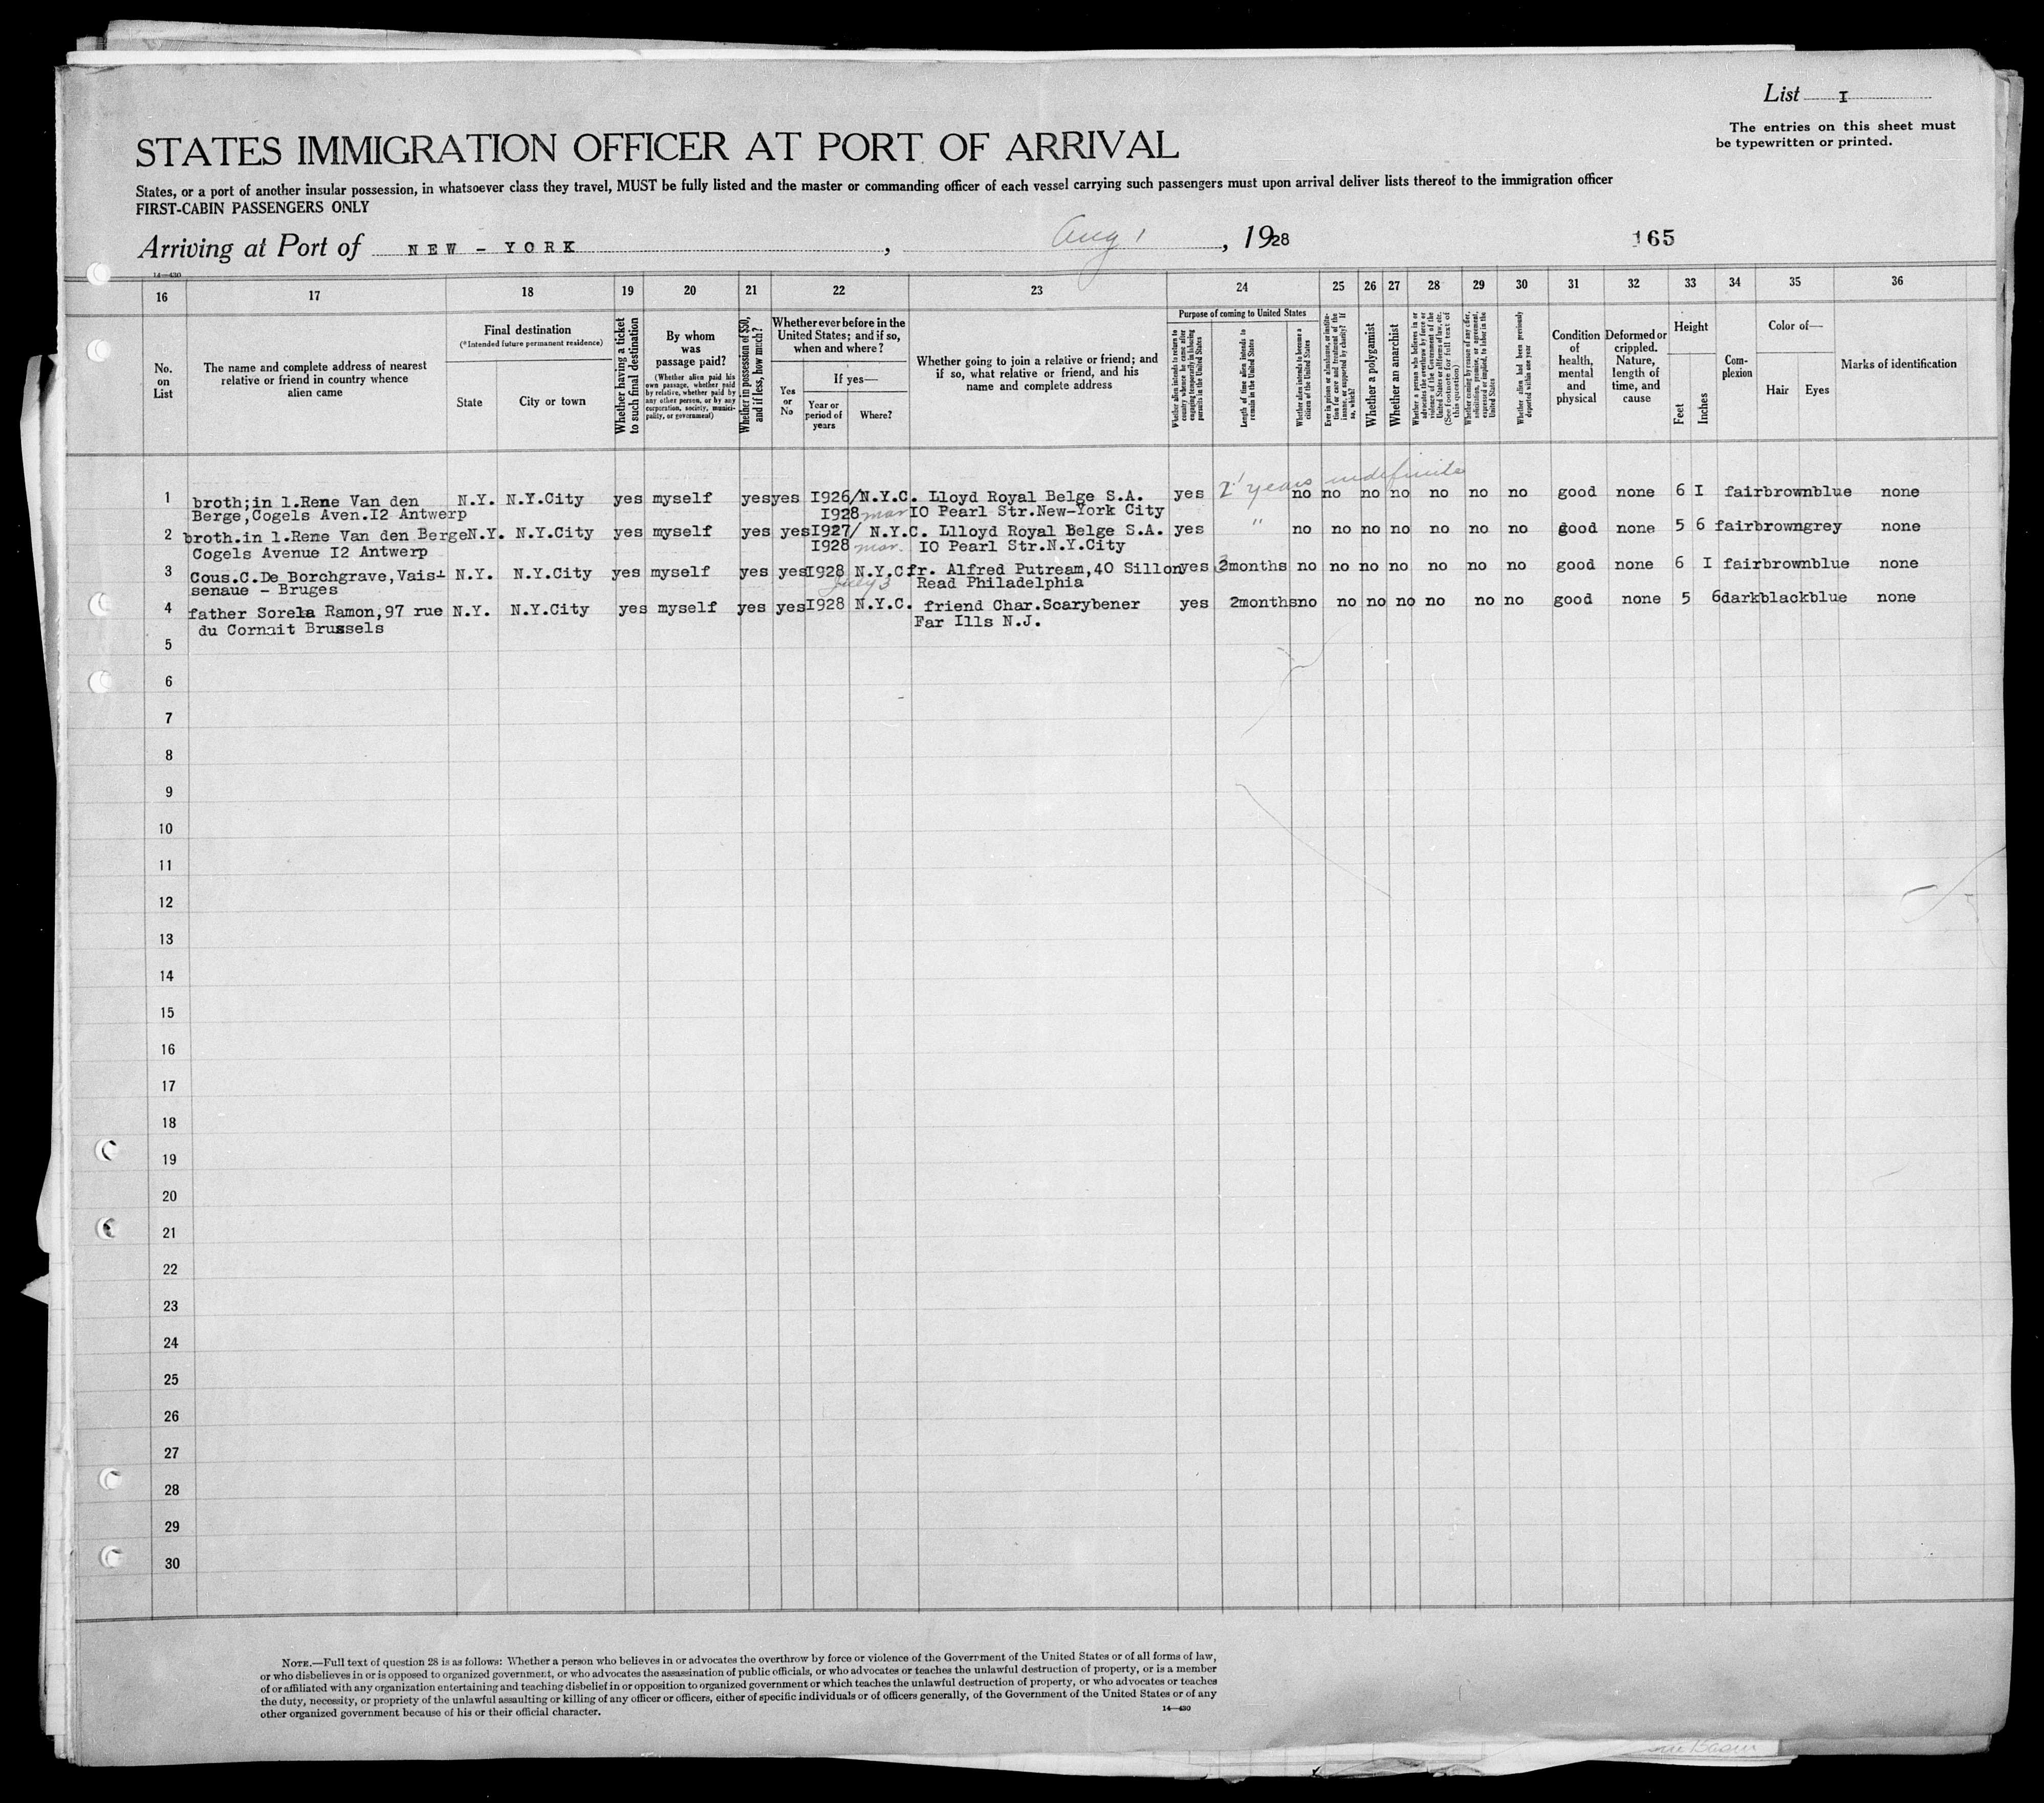 List I
The entries on this sheet must
be typewritten or printed.
STATES IMMIGRATION OFFICER AT PORT OF ARRIVAL
States, or a port of another insular possession, in whatsoever class they travel, MUST be fully listed and the master or commanding officer of each vessel carrying such passengers must upon arrival deliver lists thereof to the immigration officer
FIRST-CABIN PASSENGERS ONLY
Arriving at Port of NEW - YORK , Aug 1 , 1928
165
14—430
16 17 18 19 20 21 22 23 24 25 26 27 28 29 30 31 32 33 34 35 36
No.
on
List
The name and complete address of nearest
relative or friend in country whence
alien came
Final destination
(*Intended future permanent residence)
State
City or town
Whether having a ticket
to such final destination
By whom
was
passage paid?
(Whether alien paid his
own passage, whether paid
by relative, whether paid by
any other person, or by any
corporation, society, munici-
pality, or government)
Whether in possession of $50,
and if less, how much?
Whether ever before in the
United States; and if so,
when and where?
Yes
or
No
If yes—
Year or
period of
years
Where?
Whether going to join a relative or friend; and
if so, what relative or friend, and his
name and complete address
Purpose of coming to United States
Whether alien intends to return to
country whence he came after
engaging temporarily in laboring
pursuits in the United States
Length of time alien intends to
remain in the United States
Whether alien intends to become a
citizen of the United States
Ever in prison or almshouse, or institu-
tion for care and treatment of the
insane, or supported by charity? If
so, which?
Whether a polygamist
Whether an anarchist
Whether a person who believes in or
advocates the overthrow by force or
violence of the Government of the
United States or all forms of law, etc.
(See footnote for full text of
this question)
Whether coming by reason of any offer,
solicitation, promise, or agreement,
expressed or implied, to labor in the
United States
Whether alien had been previously
deported within one year
Condition
of
health,
mental
and
physical
Deformed or
crippled.
Nature,
length of
time, and
cause
Height
Feet
Inches
Com-
plexion
Color of—
Hair
Eyes
Marks of identification
2 years indefinite
1 broth;in l.Rene Van den N.Y. N.Y.City yes myself yes yes I926/N.Y.C. Lloyd Royal Belge S.A. yes no no no no no no no good none 6 I fair brown blue none
Berge,Cogels Aven.I2 Antwerp I928 mar IO Pearl Str.New-York City
2 broth.in l.Rene Van den Berge N.Y. N.Y.City yes myself yes yes I927/ N.Y.C. Llloyd Royal Belge S.A. yes " no no no no no no no good none 5 6 fair brown grey none
Cogels Avenue I2 Antwerp I928 mar. IO Pearl Str.N.Y.City
3 Cous.C.De Borchgrave,Vais- N.Y. N.Y.City yes myself yes yes I928 N.Y.C. fr. Alfred Putream,40 Sillon yes 2months no no no no no no no good none 6 I fair brown blue none
senaue - Bruges July 3 Read Philadelphia
4 father Sorela Ramon,97 rue N.Y. N.Y.City yes myself yes yes I928 N.Y.C. friend Char.Scarybener yes 2months no no no no no no no good none 5 6 dark black blue none
du Cornait Brussels Far Ills N.J.
5
6
7
8
9
10
11
12
13
14
15
16
17
18
19
20
21
22
23
24
25
26
27
28
29
30
NOTE.—Full text of question 28 is as follows: Whether a person who believes in or advocates the overthrow by force or violence of the Government of the United States or of all forms of law,
or who disbelieves in or is opposed to organized government, or who advocates the assassination of public officials, or who advocates or teaches the unlawful destruction of property, or is a member
of or affiliated with any organization entertaining and teaching disbelief in or opposition to organized government or which teaches the unlawful destruction of property, or who advocates or teaches
the duty, necessity, or propriety of the unlawful assaulting or killing of any officer or officers, either of specific individuals or of officers generally, of the Government of the United States or of any
other organized government because of his or their official character.
14—430